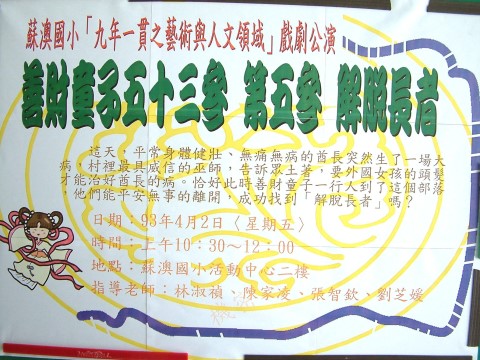 蘇澳國小「九年一貫之藝術與人文領域」戲劇公演
善財童子五十三參 第五參 解脫長者
這天，平常身體健壯、無痛無病的酋長突然生了一場大
病，村裡最具威信的巫師，告訴眾土著，要外國女孩的頭髮
才能治好酋長的病。恰好此時善財童子一行人到了這個部落
，他們能平安無事的離開，成功找到「解脫長者」嗎？
日期：93年4月2日〈星期五〉
時間：上午10：30～12：00
地點：蘇澳國小活動中心二樓
指導老師：林淑禎、陳家凌、張智欽、劉芝媛